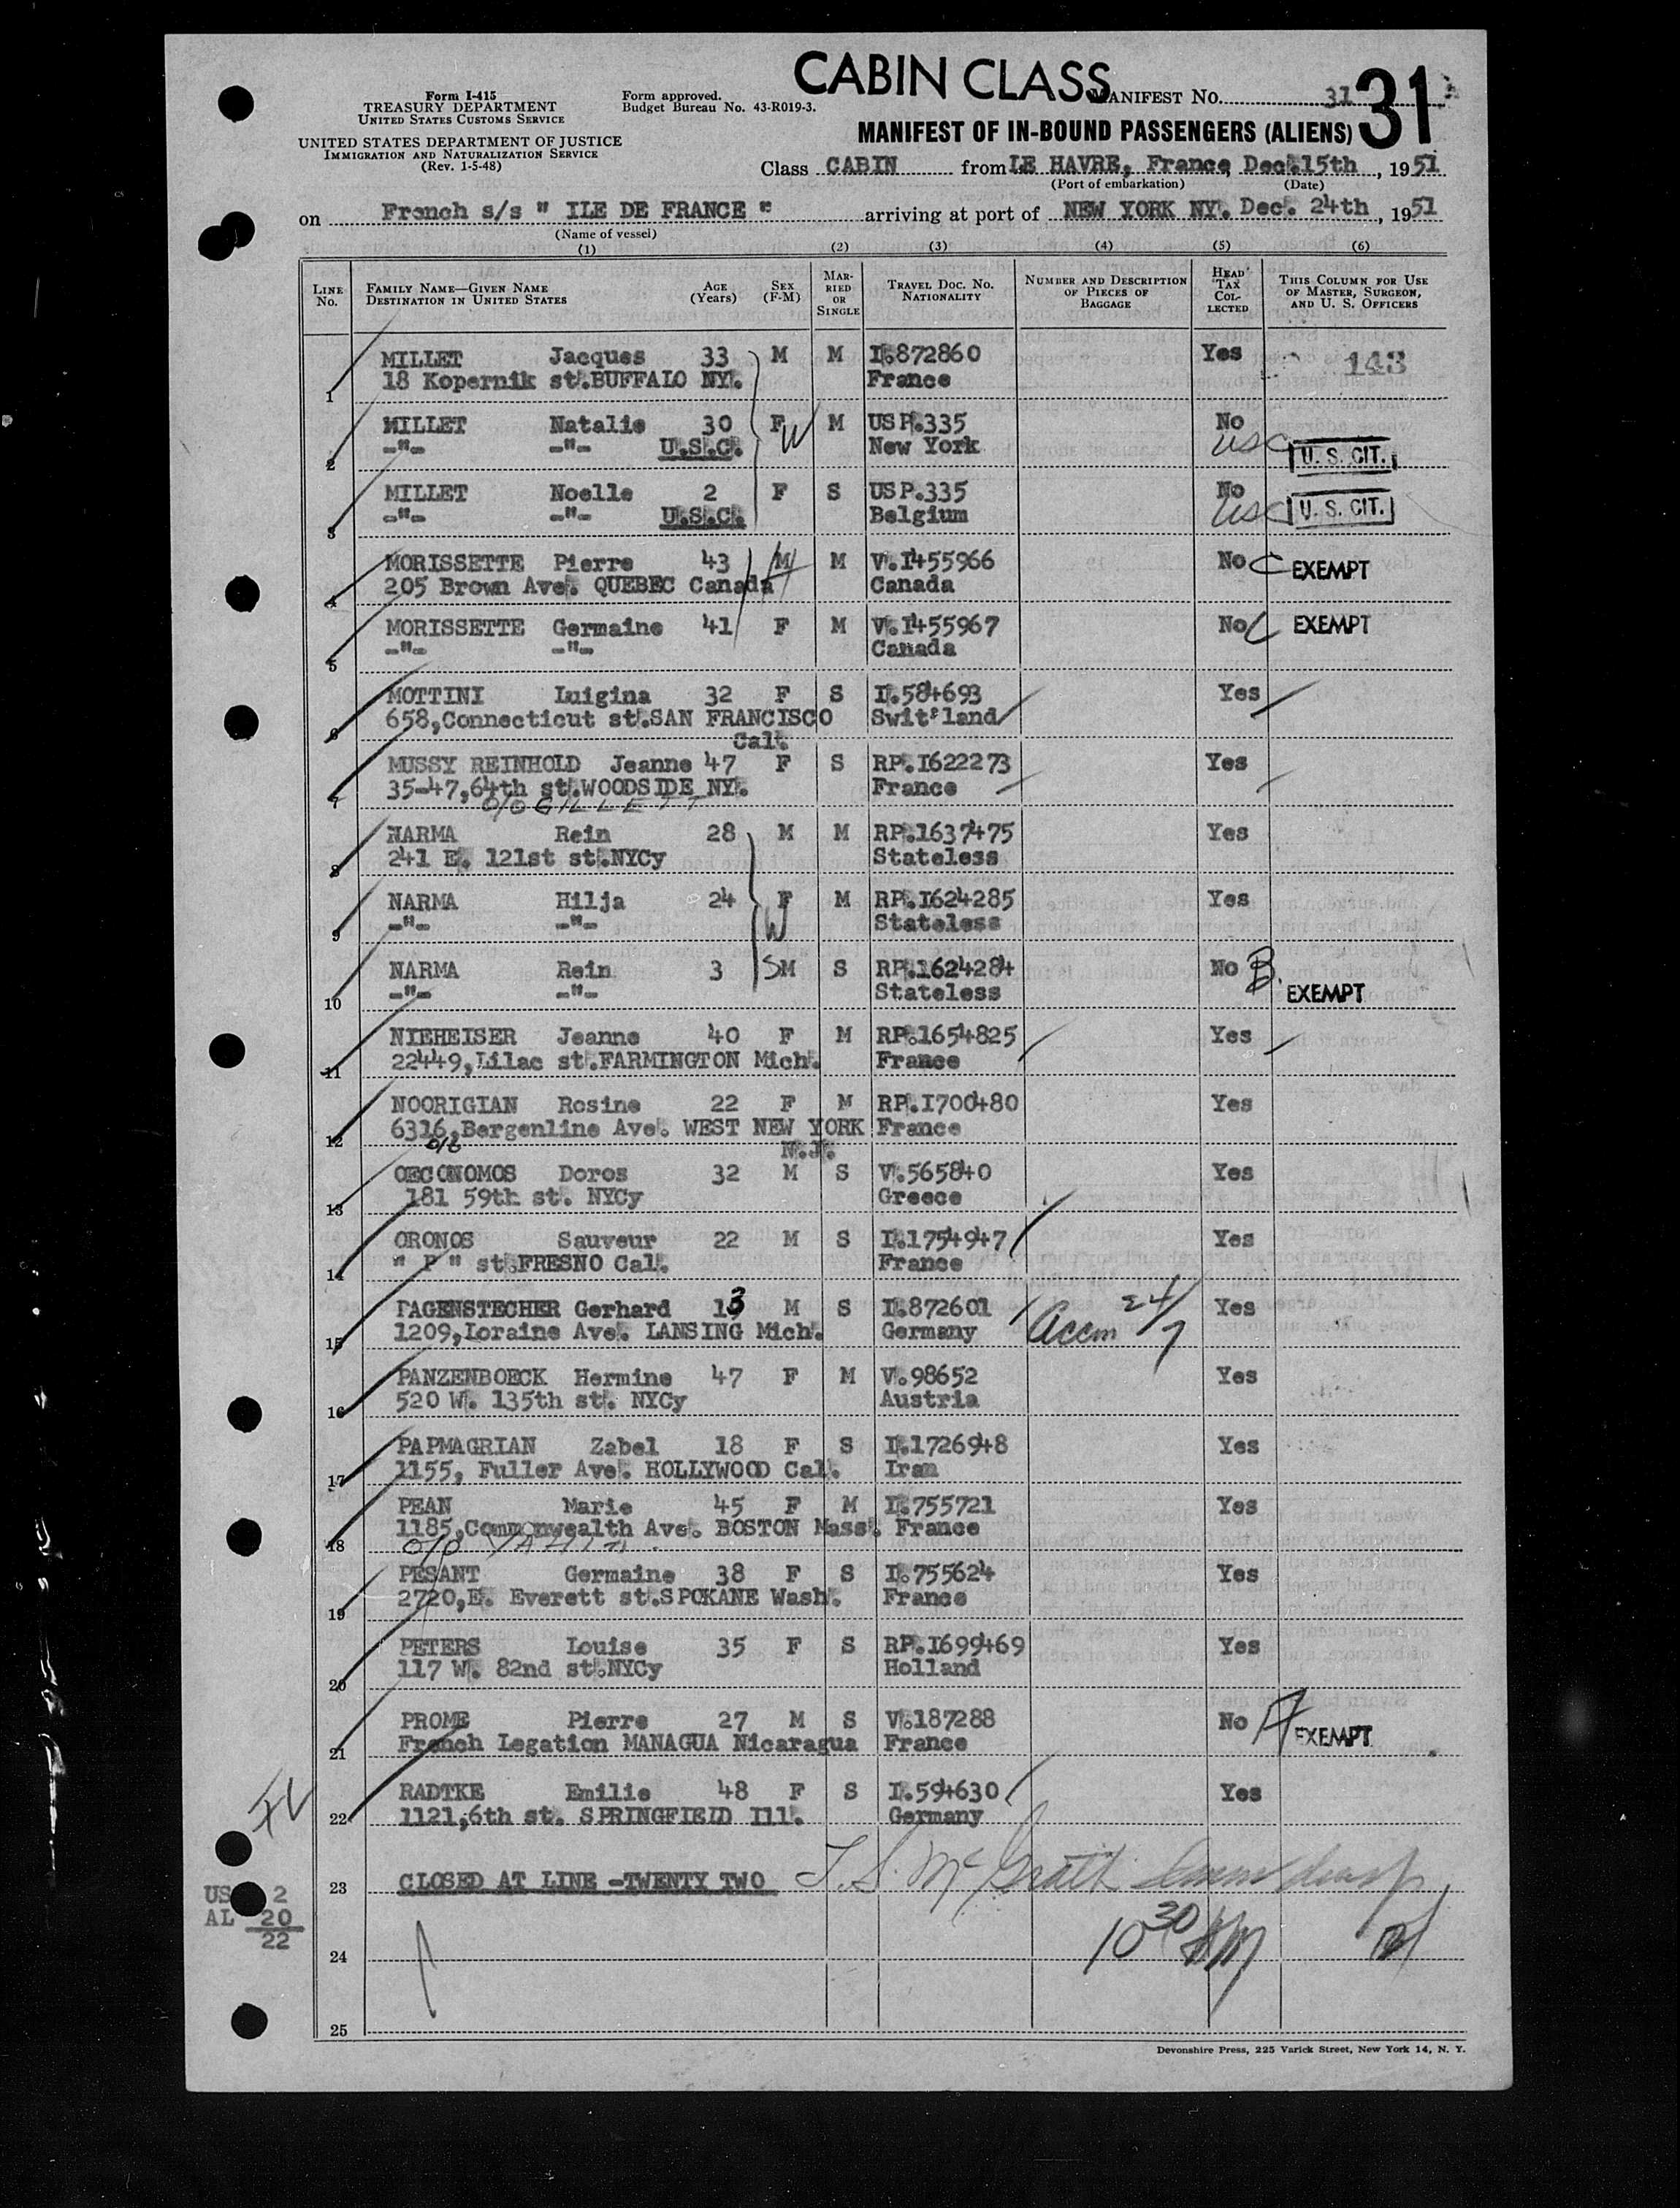 CABIN CLASS
Form I-415
TREASURY DEPARTMENT
UNITED STATES CUSTOMS SERVICE
UNITED STATES DEPARTMENT OF JUSTICE
IMMIGRATION AND NATURALIZATION SERVICE
(Rev. 1-5-48)
Form approved.
Budget Bureau No. 43-R019-3.
MANIFEST NO. 31 31
MANIFEST OF IN-BOUND PASSENGERS (ALIENS)
Class CABIN from LE HAVRE, France Dec.15th, 1951
(Port of embarkation) (Date)
on French s/s " ILE DE FRANCE " arriving at port of NEW YORK NY. Dec. 24th, 1951
(Name of vessel)
(1) (2) (3) (4) (5) (6)
LINE No. FAMILY NAME—GIVEN NAME DESTINATION IN UNITED STATES AGE (Years) SEX (F-M) MARRIED OR SINGLE TRAVEL DOC. NO. NATIONALITY NUMBER AND DESCRIPTION OF PIECES OF BAGGAGE HEAD TAX COLLECTED THIS COLUMN FOR USE OF MASTER, SURGEON, AND U. S. OFFICERS
MILLET Jacques 33 M M I.872860 Yes 143
1 18 Kopernik st.BUFFALO NY. France
MILLET Natalie 30 F W M USP.335 No
2 -"- -"- U.S.C. New York USC U. S. CIT.
MILLET Noelle 2 F S USP.335 No
3 -"- -"- U.S.C. Belgium USC U. S. CIT.
MORISSETTE Pierre 43 M M V.I455966 No C EXEMPT
4 205 Brown Ave. QUEBEC Canada Canada
MORISSETTE Germaine 41 F M V.I455967 No C EXEMPT
5 -"- -"- Canada
MOTTINI Luigina 32 F S I.584693 Yes
6 658,Connecticut st.SAN FRANCISCO Swit'land
Cal.
MUSSY REINHOLD Jeanne 47 F S RP.I622273 Yes
7 35-47,64th st.WOODSIDE NY. France
c/o GILLETT
NARMA Rein 28 M M RP.I637475 Yes
8 241 E. 121st st.NYCy Stateless
NARMA Hilja 24 F W M RP.I624285 Yes
9 -"- -"- Stateless
NARMA Rein 3 S M S RP.1624284 No B. EXEMPT
10 -"- -"- Stateless
NIEHEISER Jeanne 40 F M RP.1654825 Yes
11 22449,Lilac st.FARMINGTON Mich. France
NOORIGIAN Rosine 22 F M RP.I700480 Yes
12 6316,Bergenline Ave. WEST NEW YORK France
N.J.
OECONOMOS Doros 32 M S V.565840 Yes
13 181 59th st. NYCy Greece
ORONOS Sauveur 22 M S I.1754947 Yes
14 " P " st.FRESNO Cal. France
PAGENSTECHER Gerhard 13 M S I.872601 Yes
15 1209,Loraine Ave. LANSING Mich. Germany Accm 24/7
PANZENBOECK Hermine 47 F M V.98652 Yes
16 520 W. 135th st. NYCy Austria
PAPMAGRIAN Zabel 18 F S I.1726948 Yes
17 1155, Fuller Ave. HOLLYWOOD Cal. Iran
PEAN Marie 45 F M I.755721 Yes
18 1185,Commonwealth Ave. BOSTON Mass. France
c/o
PESANT Germaine 38 F S I.755624 Yes
19 2720,E. Everett st.SPOKANE Wash. France
PETERS Louise 35 F S RP.I699469 Yes
20 117 W. 82nd st.NYCy Holland
PROME Pierre 27 M S V.187288 No A EXEMPT
21 French Legation MANAGUA Nicaragua France
RADTKE Emilie 48 F S I.594630 Yes
22 1121,6th st. SPRINGFIELD Ill. Germany
23 CLOSED AT LINE -TWENTY TWO T.S. McGrath
US 2
AL 20
22
10 30 AM
24
25
Devonshire Press, 225 Varick Street, New York 14, N. Y.